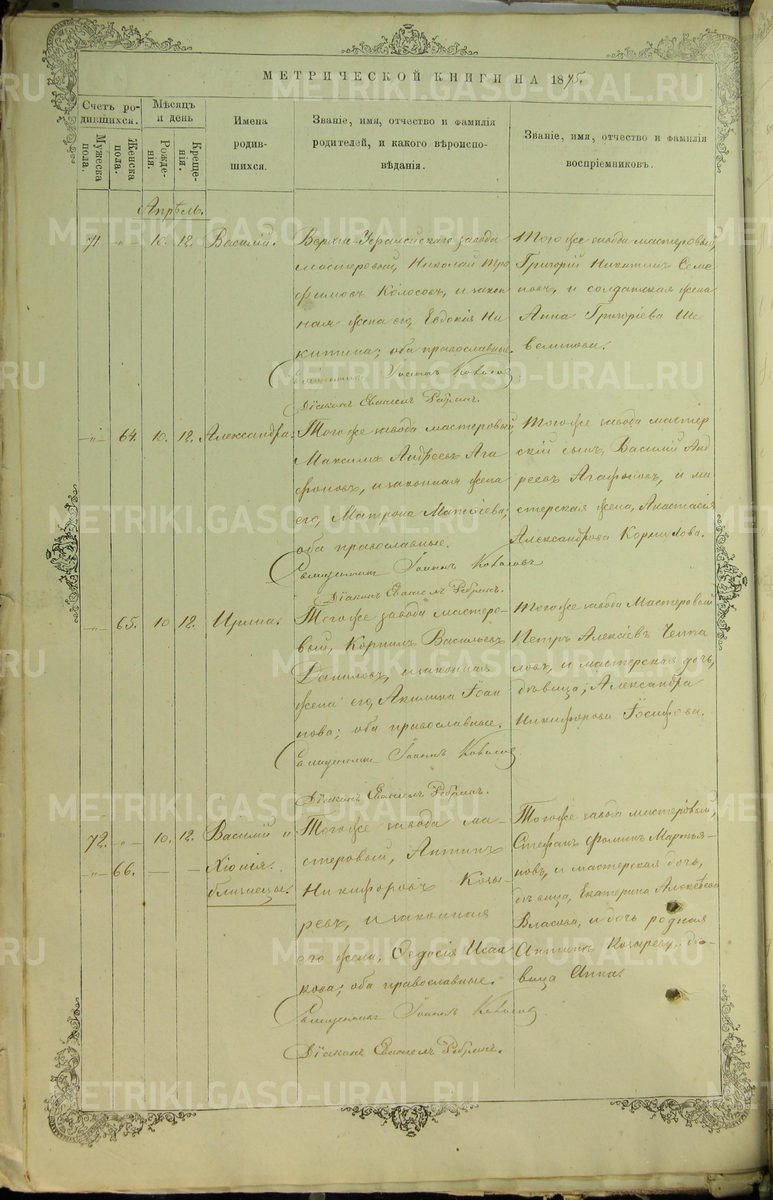 МЕТРИЧЕСКОЙ КНИГИ НА 1875.
Счетъ родившихся.
Мужеска пола.
Женска пола.
Мѣсяцъ и день
Рожденія.
Крещенія.
Имена
родив-
шихся.
Званіе, имя, отчество и фамилія
родителей, и какого вѣроиспо-
вѣданія.
Званіе, имя, отчество и фамилія
воспріемниковъ.
Апрѣль.
71 " 10. 12. Василій.
Верхне-Уфалейскаго завода
мастеровый, Николай Тро-
фимовъ Колосовъ, и закон-
ная жена его, Евдокія Ни-
китина; оба православные.
Священникъ Іоаннъ
Діаконъ
Тогоже завода мастеровый,
Григорій Никитинъ Семе-
новъ, и солдатская жена
Анна Григоріева
" 64. 10. 12. Александра.
Тогоже завода мастеровый
Максимъ Андреевъ Ага-
фоновъ, и законная жена
его, Матрона Матѳіева;
оба православные.
Священникъ Іоаннъ
Діаконъ
Тогоже завода мастер-
скій сынъ, Василій Анд-
реевъ Агафоновъ, и ма-
стерская жена, Анастасія
Александрова Кормилова.
" 65. 10 12. Ирина.
Тогоже завода мастеро-
вый, Корнилъ Васильевъ
Даниловъ, и законная
жена его, Акилина Іоан-
нова; оба православные.
Священникъ Іоаннъ
Діаконъ
Тогоже завода Мастеровый
Петръ Алексіевъ
и мастерская дочь,
дѣвица, Александра
Никифорова Іосифова.
72. " 10. 12. Василій и
" 66. — — Хіонія.
близнецы.
Тогоже завода ма-
стеровый, Антипъ
Никифоровъ Козы-
ревъ, и законная
его жена, Ѳеодосія Исаа-
кова; оба православные.
Священникъ Іоаннъ
Діаконъ
Тогоже завода мастеровый,
Стефанъ Фоминъ Мартья-
новъ, и мастерская дочь,
дѣвица, Екатерина Алексѣева
Власова, и дочь родная
Антипа Козырева, дѣ-
вица Анна.
METRIKI.GASO-URAL.RU